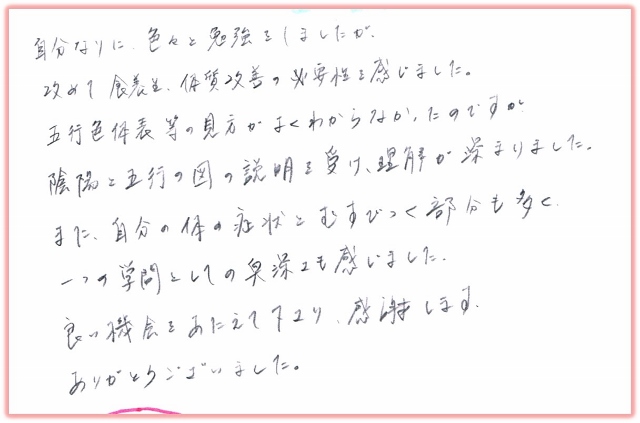 自分なりに、色々と勉強をしましたが、
改めて食養生、体質改善の必要性を感じました。
五行色体表等の見方がよくわからなかったのですが
陰陽と五行の図の説明を受け、理解が深まりました。
また、自分の体の症状とむすびつく部分も多く、
一つの学問としての奥深さも感じました。
良い機会をあたえて下さり、感謝します。
ありがとうございました。